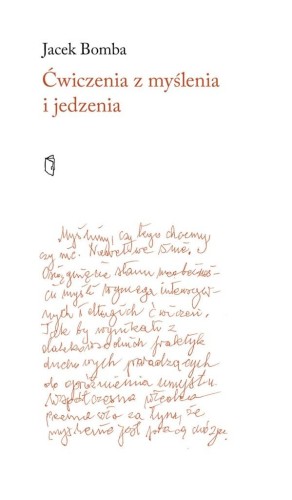 Jacek Bomba
Ćwiczenia z myślenia
i jedzenia
Myślimy, czy tego chcemy,
czy nie. Niewątpliwie
Osiągnięcie stanu nieobecnoś-
ci myśli wymaga intensyw-
nych i długich ćwiczeń.
Jak by wynikało z
dalekowschodnich praktyk
duchowych prowadzących
do opróżnienia umysłu.
Współczesna wiedza
przemawia za tym, że
myślenie jest pracą mózgu